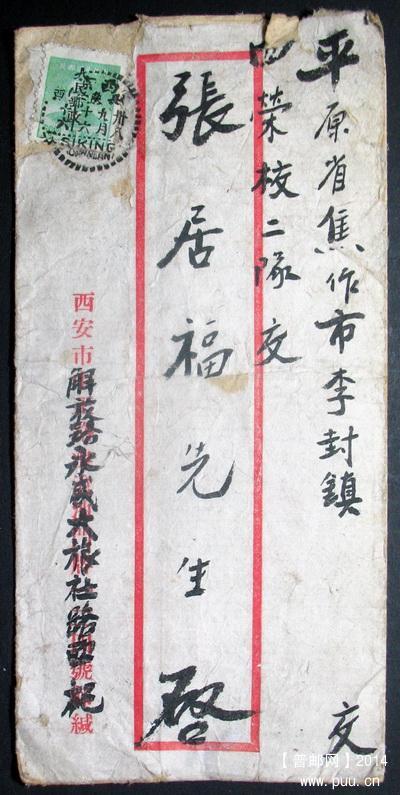 平原省焦作市李封鎮 交
四榮校二隊交
張居福先生啓
西安市 號 緘
解放路永成大旅社路
西
SIKING
【普邮网】2014
www.puu.cn